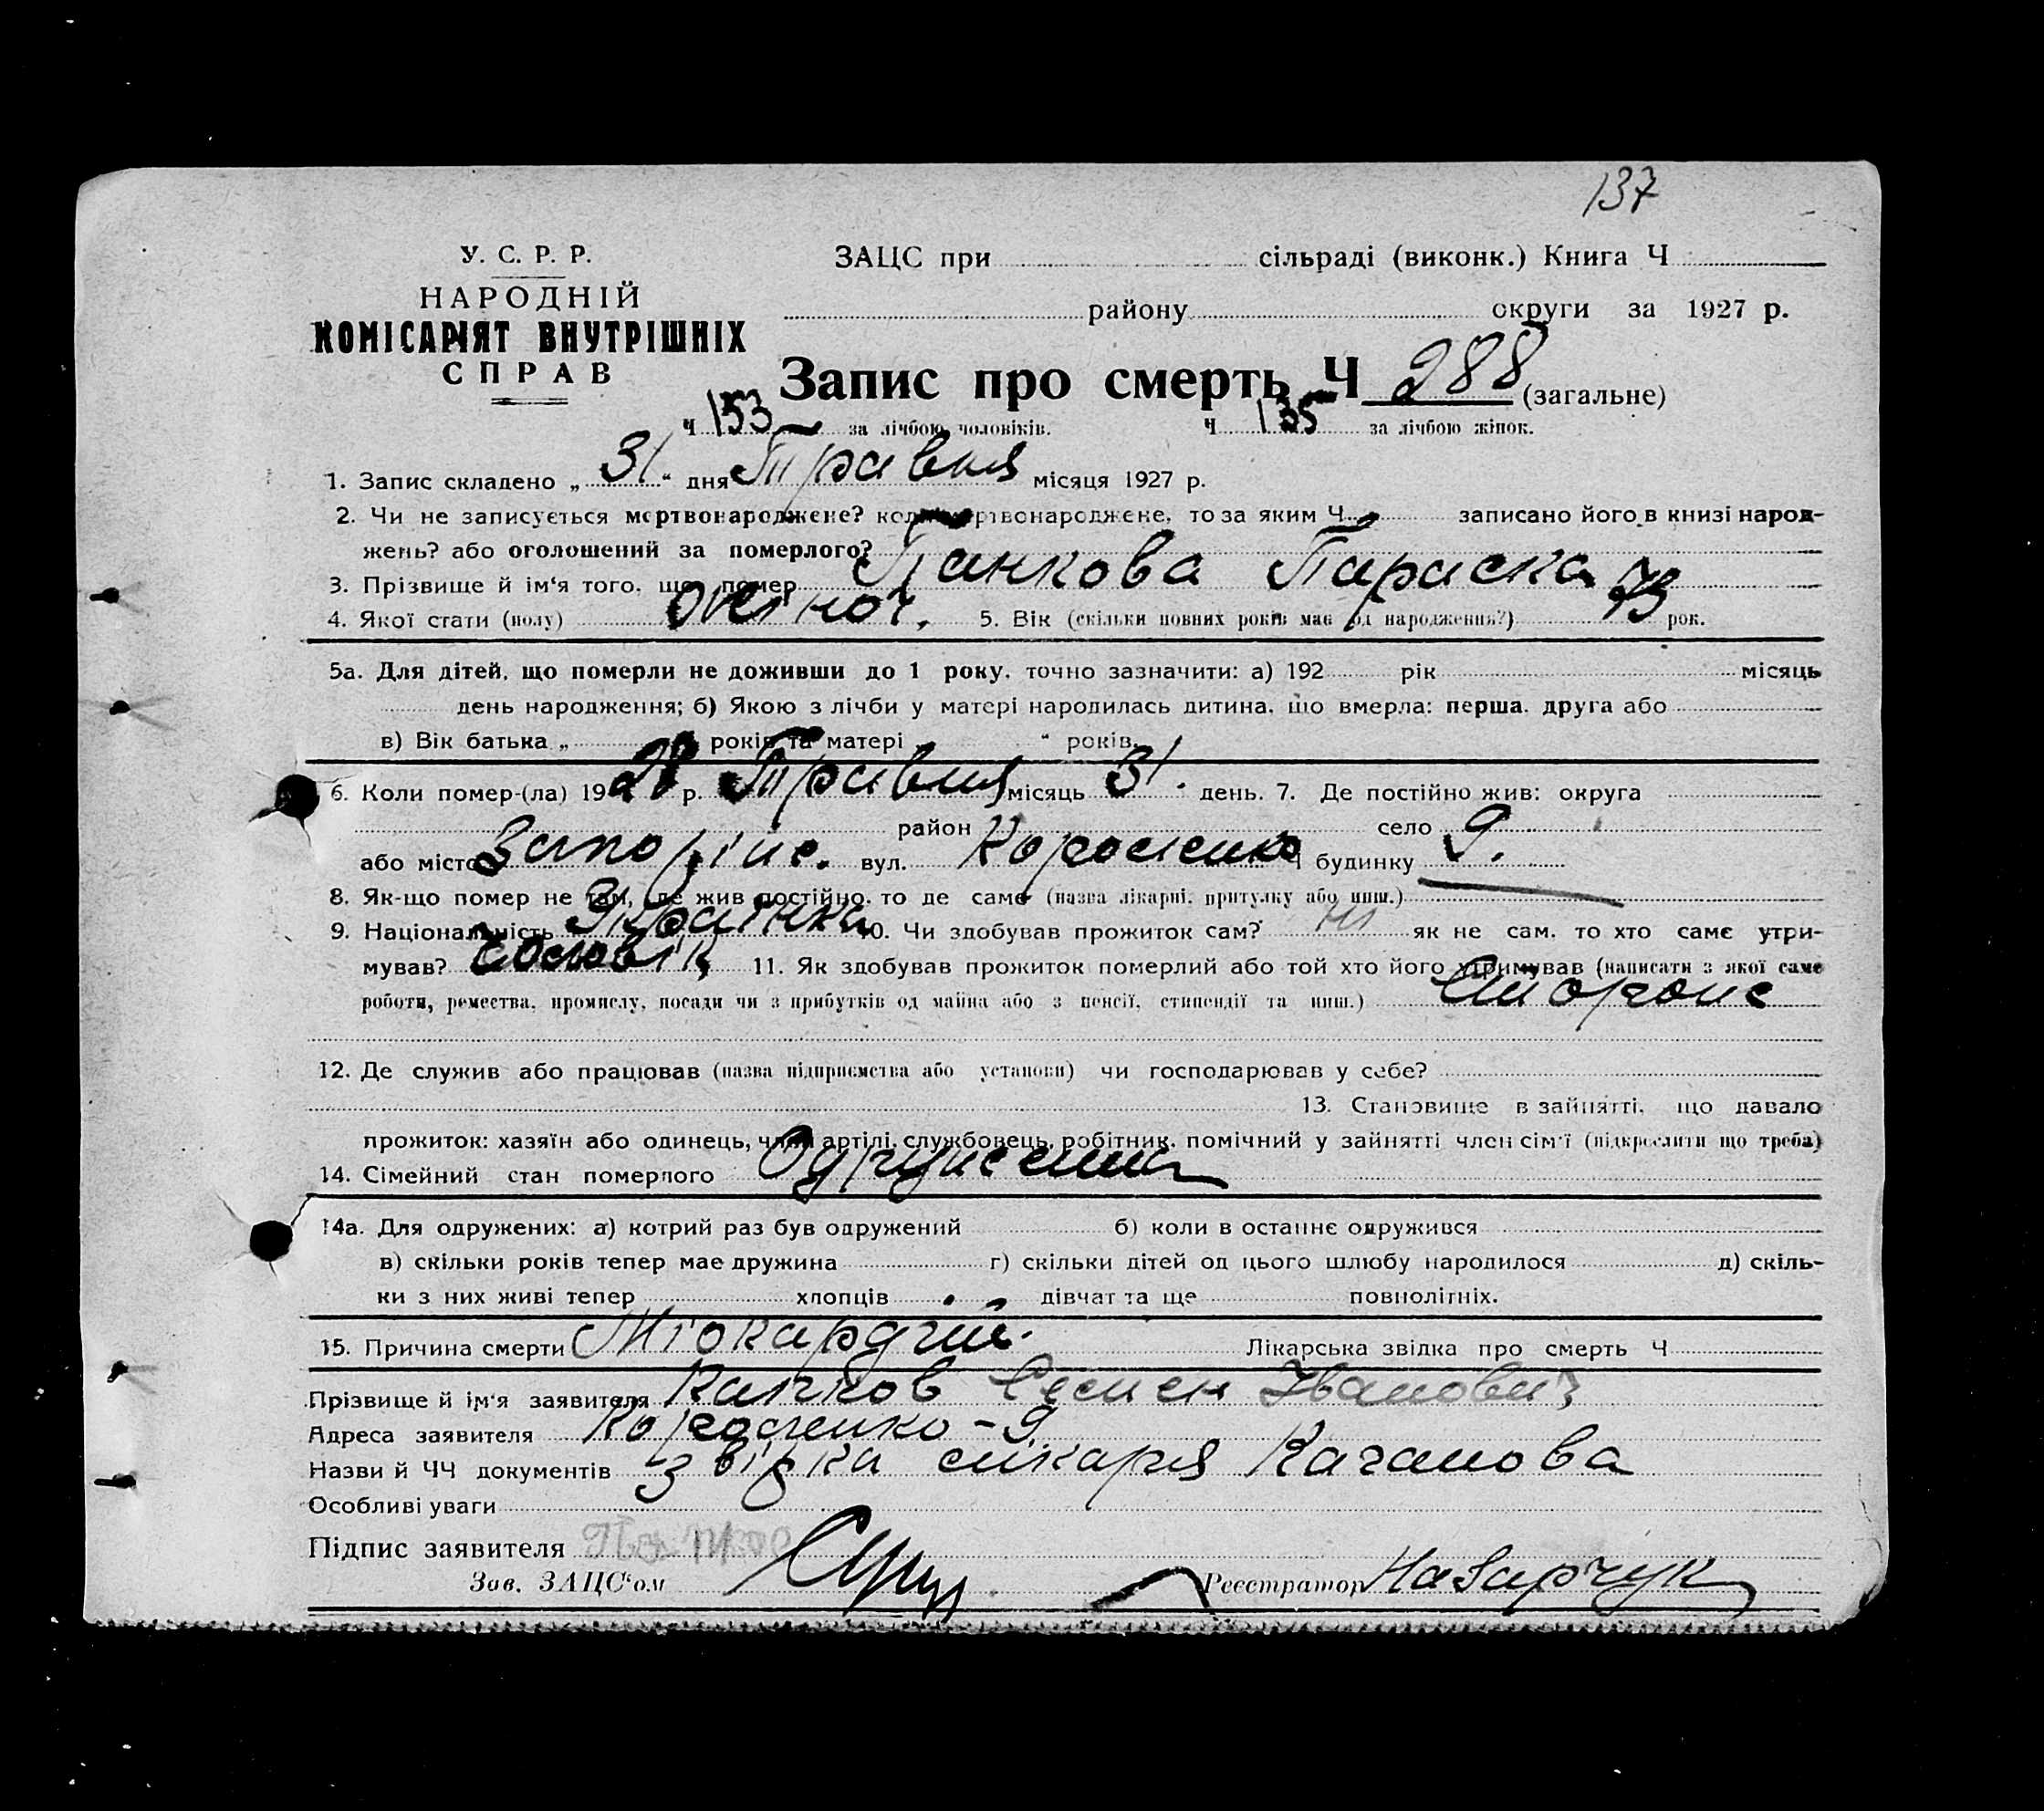 137
У. С. Р. Р.
НАРОДНІЙ
КОМІСАРІЯТ ВНУТРІШНІХ
СПРАВ
ЗАЦС при сільраді (виконк.) Книга Ч
району округи за 1927 р.
Запис про смерть Ч 288 (загальне)
Ч 153 за лічбою чоловіків. Ч 135 за лічбою жінок.
1. Запис складено „31“ дня Травня місяця 1927 р.
2. Чи не записується мертвонароджене? коли мертвонароджене, то за яким Ч записано його в книзі народ-
жень? або оголошений за померлого?
3. Прізвище й ім‘я того, що помер Панкова Параска
4. Якої стати (полу) жіноч. 5. Вік (скільки повних років має од народження?) 73 рок.
5а. Для дітей, що померли не доживши до 1 року, точно зазначити: а) 192 рік місяць
день народження; б) Якою з лічби у матері народилась дитина, що вмерла: перша, друга або
в) Вік батька „ років та матері “ років.
6. Коли помер-(ла) 1928 р. Травня місяць 31. день. 7. Де постійно жив: округа
район село
або місто Запоріж. вул. Короленко Ч будинку 9.
8. Як-що помер не там, де жив постійно, то де саме (назва лікарні, притулку або инш.)
9. Національність Українка 10. Чи здобував прожиток сам? ні як не сам, то хто саме утри-
мував? Чоловік 11. Як здобував прожиток померлий або той хто його утримував (написати з якої саме
роботи, ремества, промислу, посади чи з прибутків од майна або з пенсії, стипендії та инш.) Сторож
12. Де служив або працював (назва підприємства або установи) чи господарював у себе?
13. Становище в зайнятті, що давало
прожиток: хазяїн або одинець, член артілі, службовець, робітник, помічний у зайнятті член сім‘ї (підкреслити що треба)
14. Сімейний стан померлого Одружена
14а. Для одружених: а) котрий раз був одружений б) коли в останнє одружився
в) скільки років тепер має дружина г) скільки дітей од цього шлюбу народилося д) скіль-
ки з них живі тепер хлопців дівчат та ще повнолітніх.
15. Причина смерти Міокардій. Лікарська звідка про смерть Ч
Прізвище й ім‘я заявителя Панков Семен Іванович
Адреса заявителя Короленко - 9
Назви й ЧЧ документів Звідка лікаря Качанова
Особливі уваги
Підпис заявителя
Зав. ЗАЦС‘ом Реєстратор Назарчук